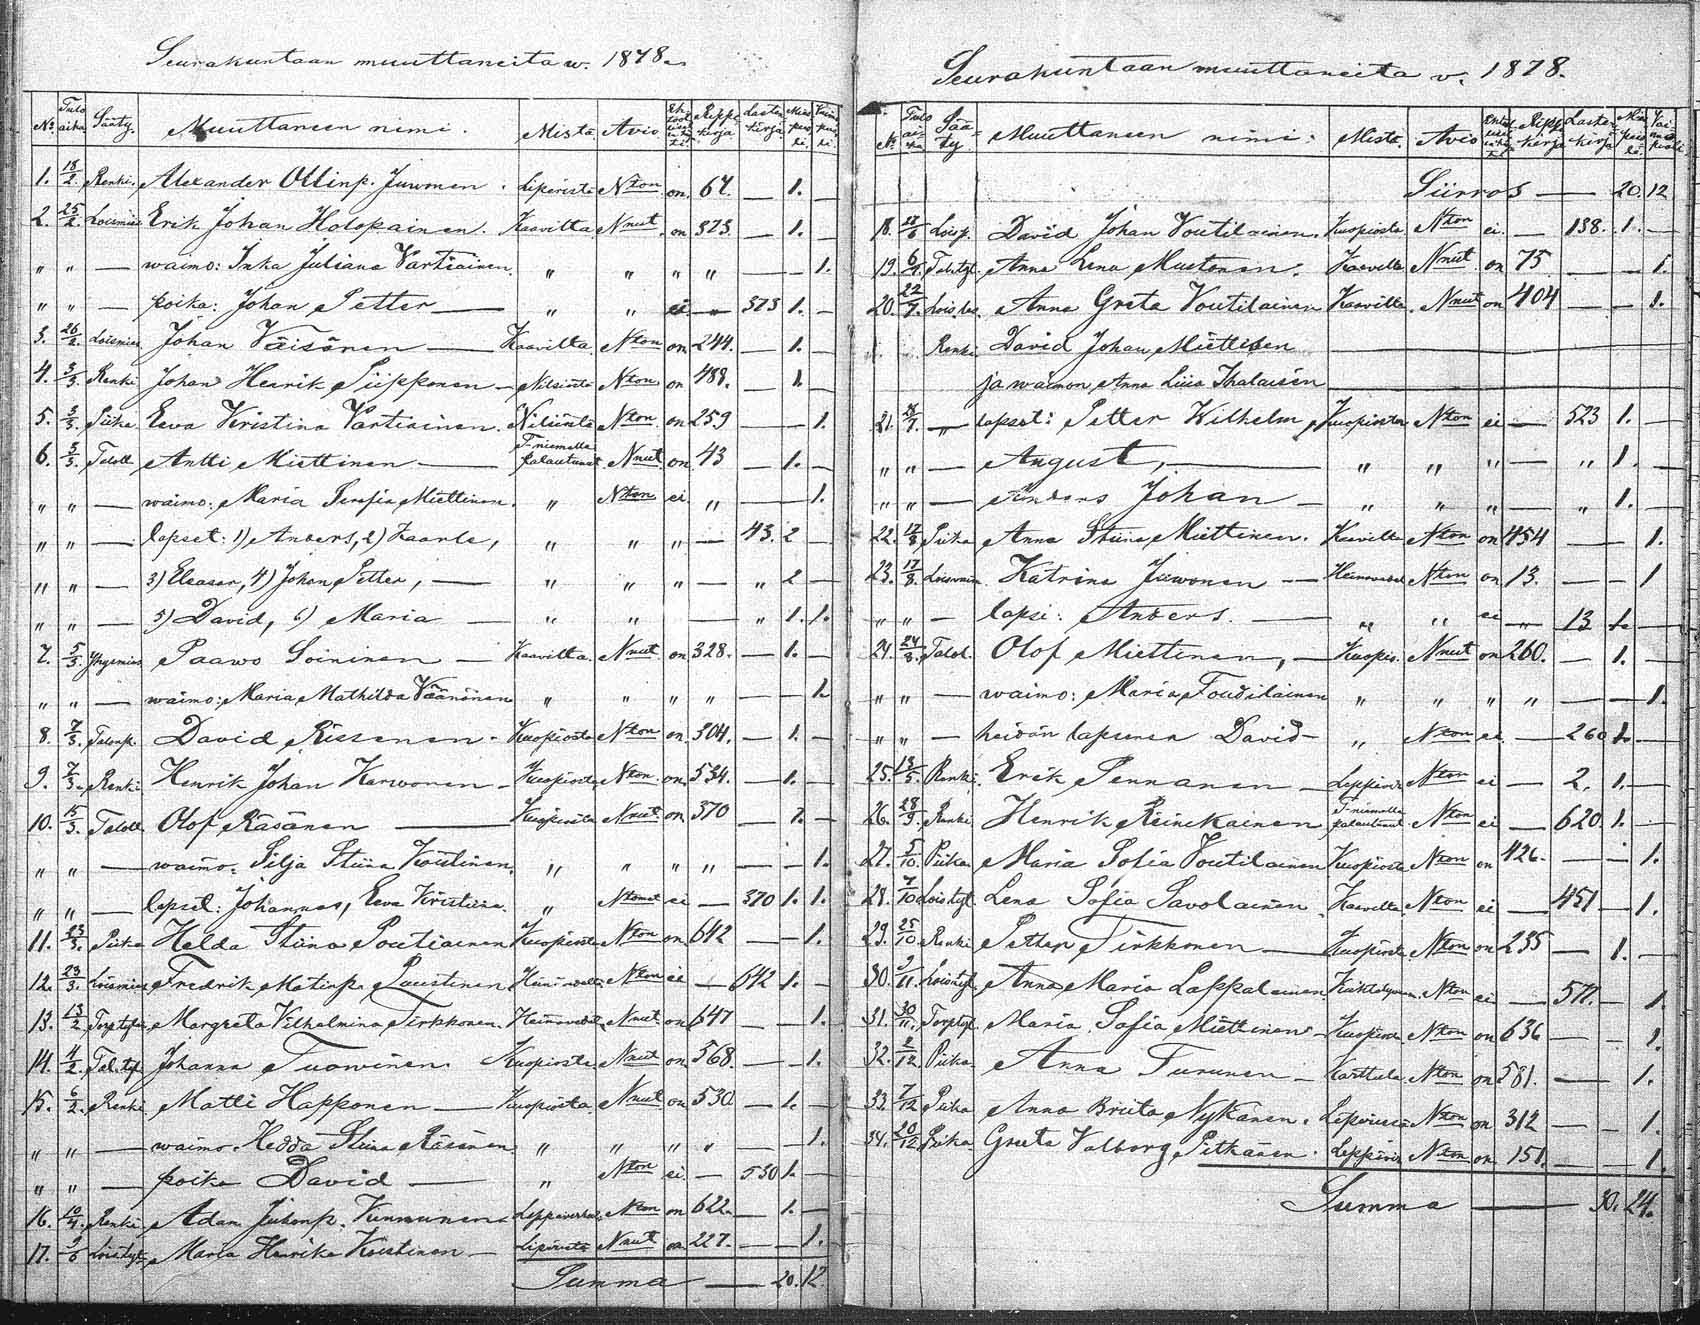 Seurakuntaan muuttaneita v. 1878.
No. Tulo aika Sääty. Muuttaneen nimi. Mistä. Avio. Rippi kirja Lasten kirja
1. 18/2 Renki. Alexander Ollinp. Juvonen. Liperistä Nton on 67. — 1. —
2. 25/2 Loismies Erik Johan Holopainen. Kaavilta Nnut. on 373. — 1. —
" " — waimo: Inka Juliana Vartiainen. " " " " — — 1.
" " — poika: Johan Petter — " " ei — 373 1. —
3. 26/2. Loismies Johan Väisänen — Kaavilta Nton on 244. — 1. —
4. 3/3. Renki Johan Henrik Siipponen — Nilsiästä Nton on 488. — 1. —
5. 3/3. Piika Eeva Kristina Vartiainen. Nilsiästä Nton on 259 — — 1.
6. 3/3. Taloll. Antti Miettinen — T-niemelta palautunut Nnut on 43 — 1. —
" " — waimo: Maria Serafia Miettinen. " Nton ei. " — — 1.
" " — lapset: 1) Anders, 2) Kaarle, " " " — 43. 2 —
" " — 3) Eleasar, 4) Johan Petter, — " " " — " 2 —
" " — 5) David, 6) Maria — " " " — " 1. 1.
7. 5/3. Paavo Soininen — Kaavilta. Nnut on 328. — 1. —
" " — waimo: Maria Mathilda Väänänen " " " " — — 1.
8. 7/3. Talonp. David Rissanen - Kuopiosta Nton on 304. — 1. —
9. 7/3. Renki Henrik Johan Karvonen — Kuopiosta Nton on 534. — 1. —
10. 15/3. Taloll. Olof Räsänen — Kuopiosta Nnut on 370 — 1. —
" " — waimo: Silja Stiina Köntinen. " " " " — — 1.
" " — lapset: Johannes, Eeva Kristiina. " Ntomat ei — 370 1. 1.
11. 23/3. Piika Helda Stiina Poutiainen Kuopiosta Nton on 642 — — 1.
12. 23/3. Loismies Fredrik Matinp. Laustinen Heinävedeltä Nton ei — 642 1. —
13. 13/2 Margreta Vilhelmina Tirkkonen. Heinävedeltä Nnut on 647 — — 1.
14. 4/2 Tal. tyt. Johanna Tuovinen. Kuopiosta Nnut on 568. — — 1.
15. 6/2. Renki Matti Happonen — Kuopiosta Nnut on 530 — 1. —
" " — waimo. Hedda Stiina Räsänen " " " " — — 1.
" " — poika David — " Nton ei — 530 1. —
16. 10/4. Renki Adam Juhonp. Kunnunen Nton on 622. — 1. —
17. Loistyt. Maria Henrika Koistinen — Liperistä Nnut on 227. — — 1.
Summa — 20. 12.
Seurakuntaan muuttaneita v. 1878.
No. Tulo aika Sääty Muuttaneen nimi: Mistä. Avio Rippi kirja Lasten kirja
Siirros — 20. 12
18. Loisp. David Johan Voutilainen. Kuopiosta Nton ei. — 138. 1. —
19. Tal. tyt. Anna Lena Mustonen. Kaavilta Nnut on 75 — — 1.
20. 22/7. Lois. les. Anna Greta Voutilainen Kaavilta. Nnut on 404 — — 1.
Renki David Johan Miettinen —
ja waimon Anna Liisa Ihalaisen —
21. " lapset: Petter Wilhelm, Kuopiosta Nton ei — 523 1. —
" " — August, — " " " — " 1. —
" " — Anders Johan — " " " — " 1. —
22. 17/8 Piika Anna Stiina Miettinen. Kaavilta Nton on 454 — — 1.
23. 17/8. Katrina Juvonen — Heinävedeltä Nton on 13. — — 1
" " — lapsi: Anders. — " " ei — 13 1. —
24. 24/8. Talol. Olof Miettinen, — Kuopio. Nnut on 260. — 1. —
" " — waimo: Maria Toudilainen " " " " — — 1.
" " — heidän lapsensa David — " Nton ei. — 260 1. —
25. Renki. Erik Pennanen — Leppävir. Nton ei — 2. 1. —
26. 28/9. Renki. Henrik Reinikainen T-niemelta palautunut. Nton ei — 620. 1. —
27. 5/10. Piika. Maria Sofia Voutilainen Kuopiosta Nton on 426. — — 1.
28. 7/10 Loistyt. Lena Sofia Savolainen. Kaavilta. Nton ei — 451 — 1.
29. 25/10. Renki Petter Tirkkonen — Kuopiosta Nton on 235 — 1. —
30. Loistyt. Anna Maria Lappalainen Nton ei — 577. — 1.
31. 30/11. Maria Sofia Miettinen — Kuopiosta Nton on 636 — — 1.
32. 2/12. Piika Anna Turunen — Karttula. Nton on 581. — — 1.
33. 7/12 Piika Anna Briita Nykänen. Nton on 312 — — 1.
34. 20/12 Piika. Greeta Valborg Pitkänen. Leppävir. Nton on 151. — — 1.
Summa — 30. 24.